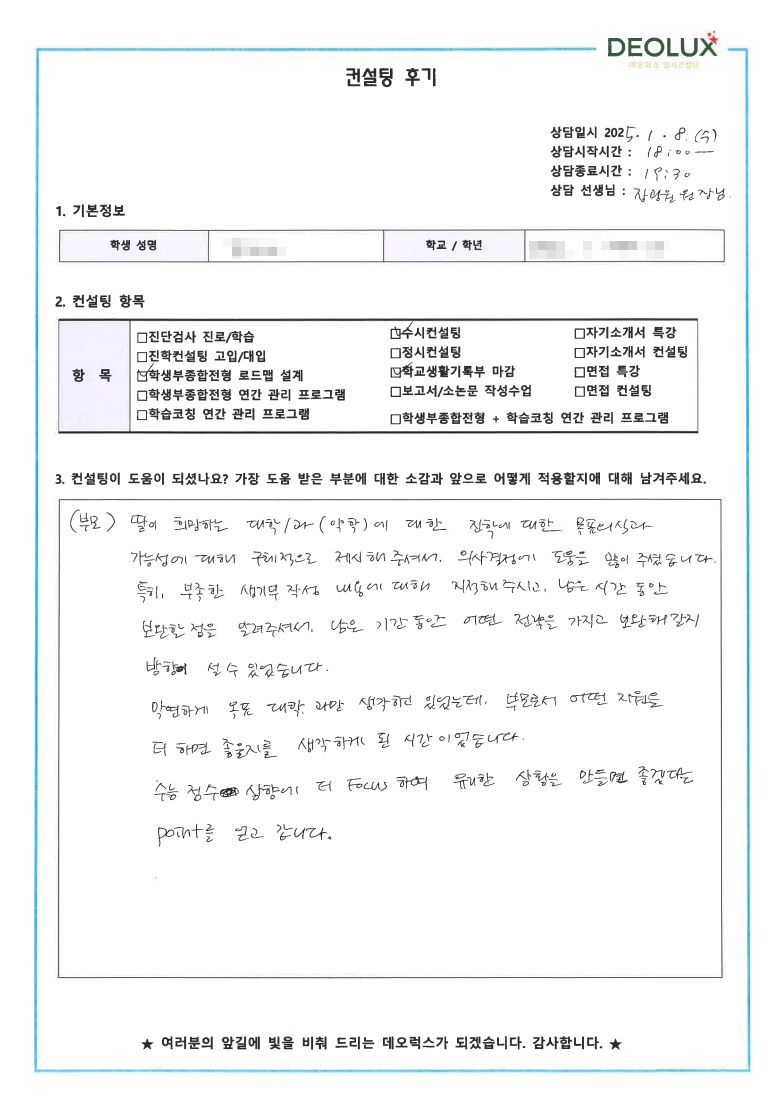 DEOLUX
데오럭스 입시컨설팅
컨설팅 후기
상담일시 2025. 1. 8. (수)
상담시작시간 : 18:00 —
상담종료시간 : 19:30
상담 선생님 : 원장님.
1. 기본정보
학생 성명
학교 / 학년
2. 컨설팅 항목
항 목
□진단검사 진로/학습 □수시컨설팅 □자기소개서 특강
□진학컨설팅 고입/대입 □정시컨설팅 □자기소개서 컨설팅
□학생부종합전형 로드맵 설계 □학교생활기록부 마감 □면접 특강
□학생부종합전형 연간 관리 프로그램 □보고서/소논문 작성수업 □면접 컨설팅
□학습코칭 연간 관리 프로그램 □학생부종합전형 + 학습코칭 연간 관리 프로그램
3. 컨설팅이 도움이 되셨나요? 가장 도움 받은 부분에 대한 소감과 앞으로 어떻게 적용할지에 대해 남겨주세요.
(부모) 딸이 희망하는 대학/과(약학)에 대한 진학에 대한 목표의식과
가능성에 대해 구체적으로 제시해주셔서, 의사결정에 도움을 많이 주셨습니다.
특히, 부족한 생기부 작성 내용에 대해 지적해주시고, 남은 시간 동안
보완할 점을 알려주셔서, 남은 기간 동안 어떤 전략을 가지고 보완해갈지
방향이 설 수 있었습니다.
막연하게 목표 대학, 과만 생각하고 있었는데, 부모로서 어떤 지원을
더 하면 좋을지를 생각하게 된 시간이었습니다.
수능 점수 상향에 더 Focus하여 유리한 상황을 만들면 좋겠다는
point를 얻고 갑니다.
★ 여러분의 앞길에 빛을 비춰 드리는 데오럭스가 되겠습니다. 감사합니다. ★